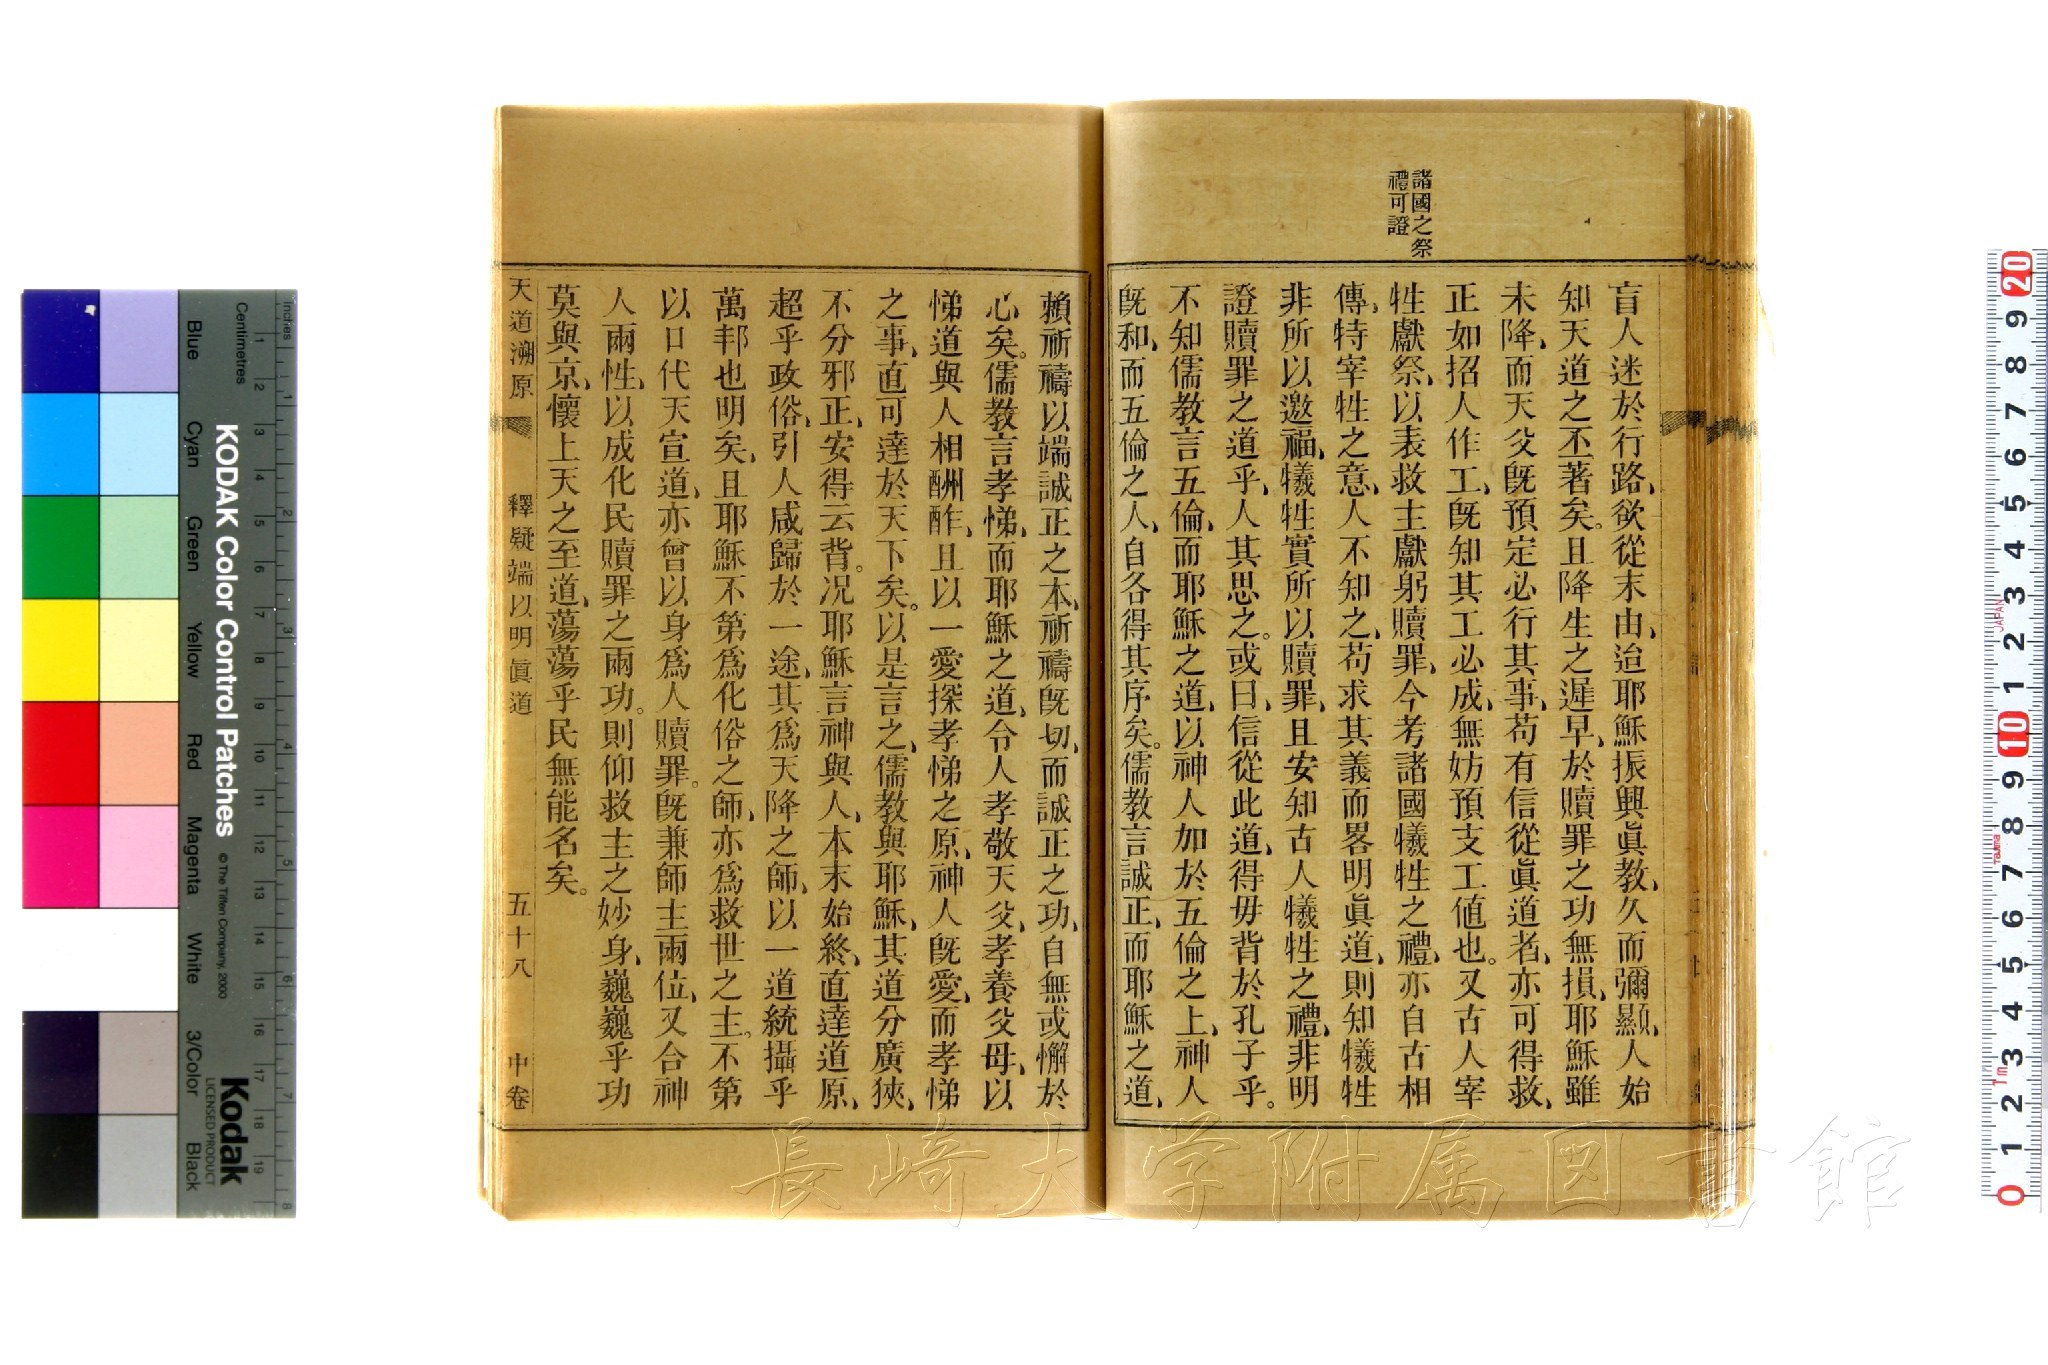 諸國之祭
禮可證
盲人迷於行路、欲從末由、迨耶穌振興眞教、久而彌顯、人始
知天道之丕著矣。且降生之遲早、於贖罪之功無損、耶穌雖
未降、而天父旣預定必行其事、苟有信從眞道者、亦可得救、
正如招人作工、旣知其工必成、無妨預支工值也。又古人宰
牲獻祭、以表救主獻躬贖罪、今考諸國犧牲之禮、亦自古相
傳、特宰牲之意、人不知之、苟求其義而畧明眞道、則知犧牲
非所以邀福、犧牲實所以贖罪、且安知古人犧牲之禮、非明
證贖罪之道乎、人其思之。或曰、信從此道、得毋背於孔子乎。
不知儒教言五倫、而耶穌之道、以神人加於五倫之上、神人
旣和、而五倫之人、自各得其序矣。儒教言誠正、而耶穌之道、
賴祈禱以端誠正之本、祈禱旣切、而誠正之功、自無或懈於
心矣。儒教言孝悌、而耶穌之道、令人孝敬天父、孝養父母、以
悌道與人相酬酢、且以一愛探孝悌之原、神人旣愛、而孝悌
之事、直可達於天下矣。以是言之、儒教與耶穌、其道分廣狹、
不分邪正、安得云背。况耶穌言神與人、本末始終、直達道原、
超乎政俗、引人咸歸於一途、其爲天降之師、以一道統攝乎
萬邦也明矣、且耶穌不第爲化俗之師、亦爲救世之主。不第
以口代天宣道、亦曾以身爲人贖罪。旣兼師主兩位、又合神
人兩性、以成化民贖罪之兩功。則仰救主之妙身、巍巍乎功
莫與京、懷上天之至道、蕩蕩乎民無能名矣。
天道溯原 釋疑端以明眞道 五十八 中卷
KODAK Color Control Patches
© The Tiffen Company, 2000
Kodak
LICENSED PRODUCT
inches
Centimetres
Blue Cyan Green Yellow Red Magenta White 3/Color Black
長崎大学附属図書館
JAPAN